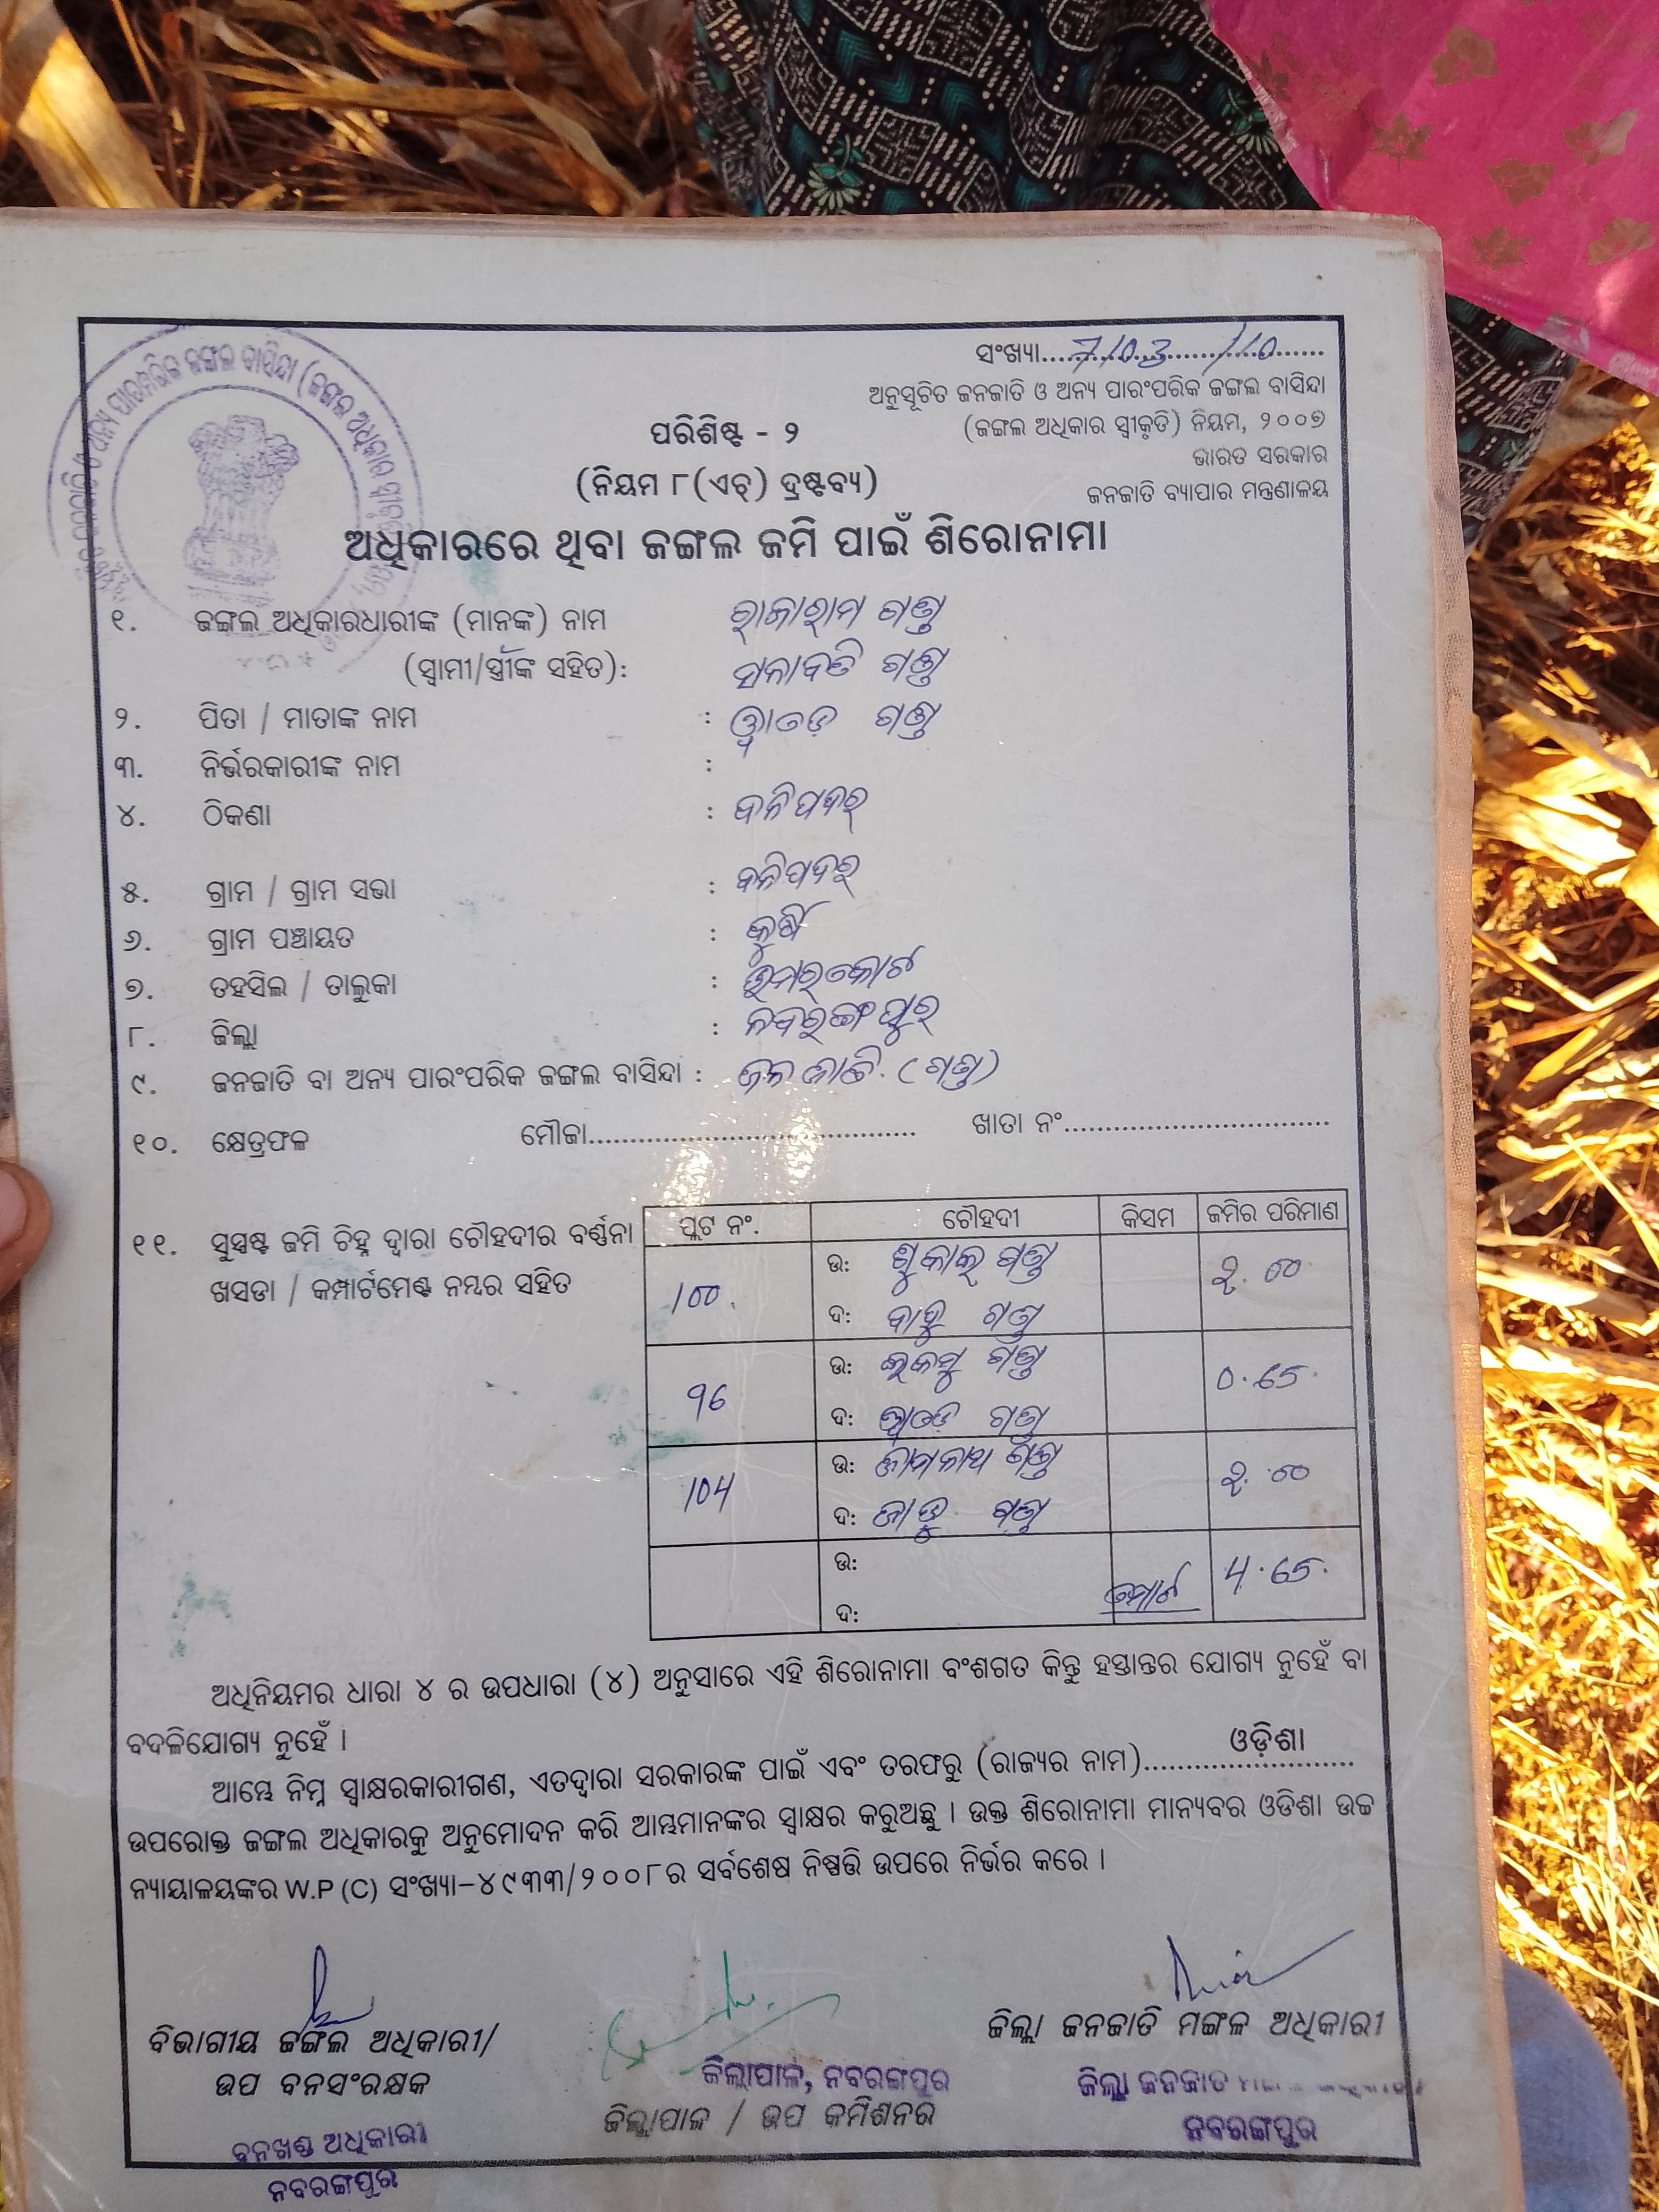 ସଂଖ୍ୟା....7103....../10......
ଅନୁସୂଚିତ ଜନଜାତି ଓ ଅନ୍ୟ ପାରଂପରିକ ଜଙ୍ଗଲ ବାସିନ୍ଦା
(ଜଙ୍ଗଲ ଅଧିକାର ସ୍ୱୀକୃତି) ନିୟମ, ୨୦୦୭
ଭାରତ ସରକାର
ଜନଜାତି ବ୍ୟାପାର ମନ୍ତ୍ରଣାଳୟ
ପରିଶିଷ୍ଟ - ୨
(ନିୟମ ୮(ଏଚ୍) ଦ୍ରଷ୍ଟବ୍ୟ)
ଅଧିକାରରେ ଥିବା ଜଙ୍ଗଲ ଜମି ପାଇଁ ଶିରୋନାମା
୧. ଜଙ୍ଗଲ ଅଧିକାରଧାରୀଙ୍କ (ମାନଙ୍କ) ନାମ ରାଜାରାମ ଗଣ୍ଡ
(ସ୍ୱାମୀ/ସ୍ତ୍ରୀଙ୍କ ସହିତ): ଗଣ୍ଡ
୨. ପିତା / ମାତାଙ୍କ ନାମ : ଗଣ୍ଡ
୩. ନିର୍ଭରକାରୀଙ୍କ ନାମ :
୪. ଠିକଣା : ବଳିପଦର
୫. ଗ୍ରାମ / ଗ୍ରାମ ସଭା : ବଳିପଦର
୬. ଗ୍ରାମ ପଞ୍ଚାୟତ :
୭. ତହସିଲ / ତାଲୁକା : ଉମରକୋଟ
୮. ଜିଲ୍ଲା : ନବରଙ୍ଗପୁର
୯. ଜନଜାତି ବା ଅନ୍ୟ ପାରଂପରିକ ଜଙ୍ଗଲ ବାସିନ୍ଦା : ଜନଜାତି. (ଗଣ୍ଡ)
୧୦. କ୍ଷେତ୍ରଫଳ ମୌଜା........................ ଖାତା ନଂ........................
୧୧. ସୁସ୍ପଷ୍ଟ ଜମି ଚିହ୍ନ ଦ୍ୱାରା ଚୌହଦୀର ବର୍ଣ୍ଣନା
ଖସଡା / କମ୍ପାର୍ଟମେଣ୍ଟ ନମ୍ବର ସହିତ
ପ୍ଲଟ ନଂ. ଚୌହଦୀ କିସମ ଜମିର ପରିମାଣ
100. ଉ: ଗଣ୍ଡ 2.00
ଦ: ଗଣ୍ଡ
96 ଉ: ଗଣ୍ଡ 0.65
ଦ: ଗଣ୍ଡ
104 ଉ: ଗଣ୍ଡ 2.00
ଦ: ଗଣ୍ଡ
ଉ: ମୋଟ 4.65
ଦ:
ଅଧିନିୟମର ଧାରା ୪ ର ଉପଧାରା (୪) ଅନୁସାରେ ଏହି ଶିରୋନାମା ବଂଶଗତ କିନ୍ତୁ ହସ୍ତାନ୍ତର ଯୋଗ୍ୟ ନୁହେଁ ବା
ବଦଳିଯୋଗ୍ୟ ନୁହେଁ ।
ଆମ୍ଭେ ନିମ୍ନ ସ୍ୱାକ୍ଷରକାରୀଗଣ, ଏତଦ୍ଦ୍ୱାରା ସରକାରଙ୍କ ପାଇଁ ଏବଂ ତରଫରୁ (ରାଜ୍ୟର ନାମ)......ଓଡ଼ିଶା......
ଉପରୋକ୍ତ ଜଙ୍ଗଲ ଅଧିକାରକୁ ଅନୁମୋଦନ କରି ଆମ୍ଭମାନଙ୍କର ସ୍ୱାକ୍ଷର କରୁଅଛୁ । ଉକ୍ତ ଶିରୋନାମା ମାନ୍ୟବର ଓଡିଶା ଉଚ୍ଚ
ନ୍ୟାୟାଳୟଙ୍କର W.P (C) ସଂଖ୍ୟା-୪୯୩୩/୨୦୦୮ର ସର୍ବଶେଷ ନିଷ୍ପତ୍ତି ଉପରେ ନିର୍ଭର କରେ ।
ବିଭାଗୀୟ ଜଙ୍ଗଲ ଅଧିକାରୀ/
ଉପ ବନସଂରକ୍ଷକ
ବନଖଣ୍ଡ ଅଧିକାରୀ
ନବରଙ୍ଗପୁର
ଜିଲ୍ଲାପାଳ, ନବରଙ୍ଗପୁର
ଜିଲ୍ଲାପାଳ / ଉପ କମିଶନର
ଜିଲ୍ଲା ଜନଜାତି ମଙ୍ଗଳ ଅଧିକାରୀ
ଜିଲ୍ଲା ଜନଜାତି
ନବରଙ୍ଗପୁର